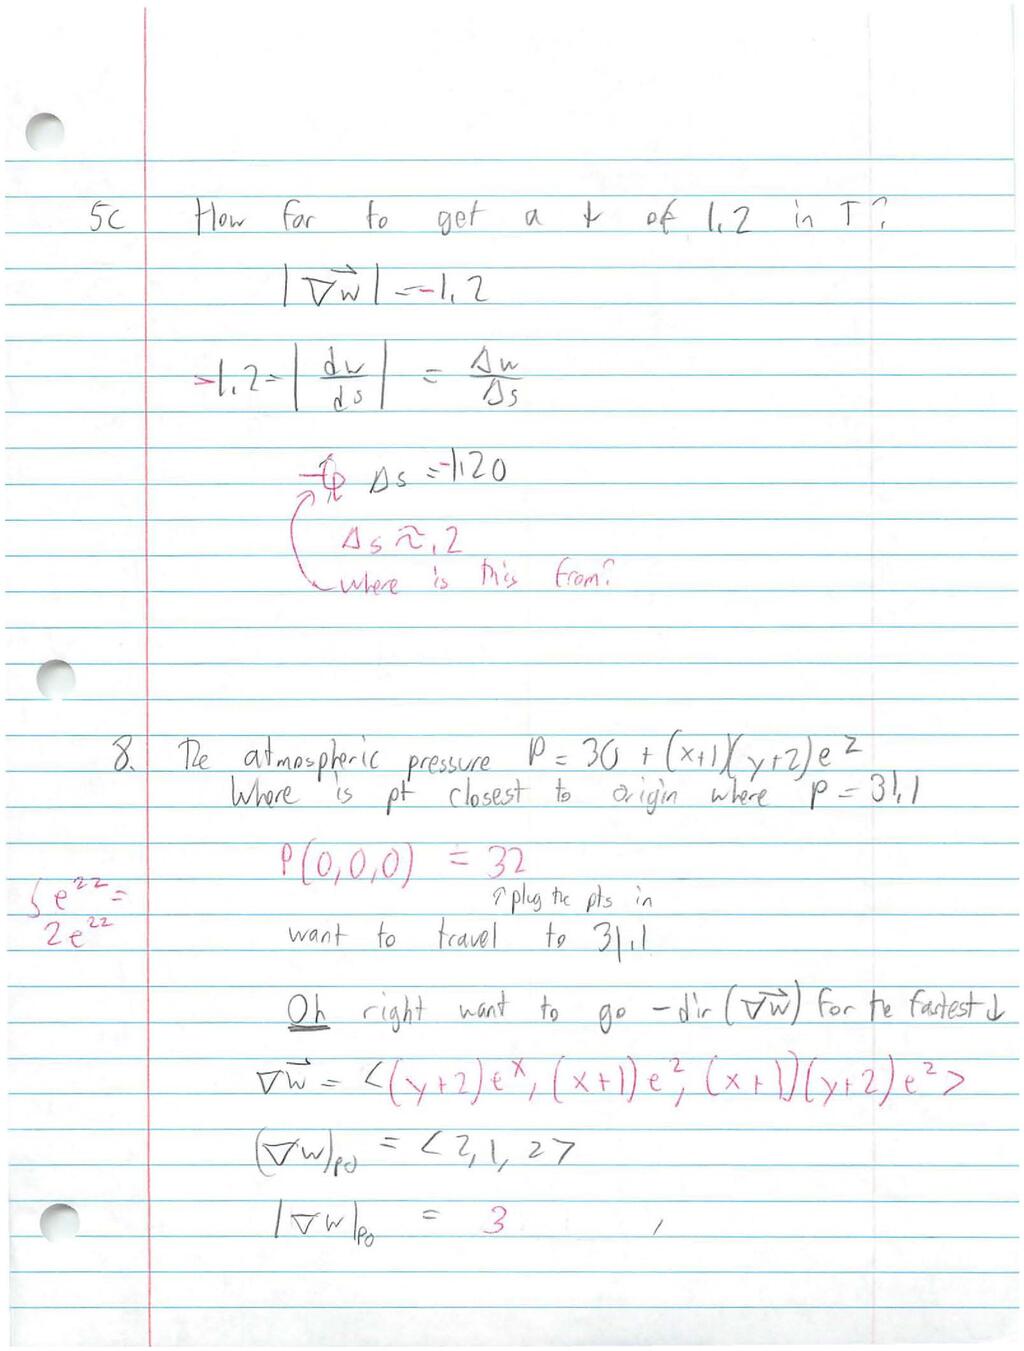 5c How far to get a ↓ of 1.2 in T?
|∇w⃗| = -1.2
-1.2 = |dw/ds| = Δw/Δs
Δs = -1.20
Δs ≈ .2
where is this from?
8. The atmospheric pressure P = 30 + (x+1)(y+2)e^z
Where is pt closest to origin where P = 31.1
P(0,0,0) = 32
↑ plug the pts in
∫e^22 =
2e^22
want to travel to 31.1
Oh right want to go -dir (∇w⃗) for the fastest ↓
∇w⃗ = <(y+2)e^x, (x+1)e^z, (x+1)(y+2)e^z>
(∇w)P0 = <2, 1, 2>
|∇w|P0 = 3